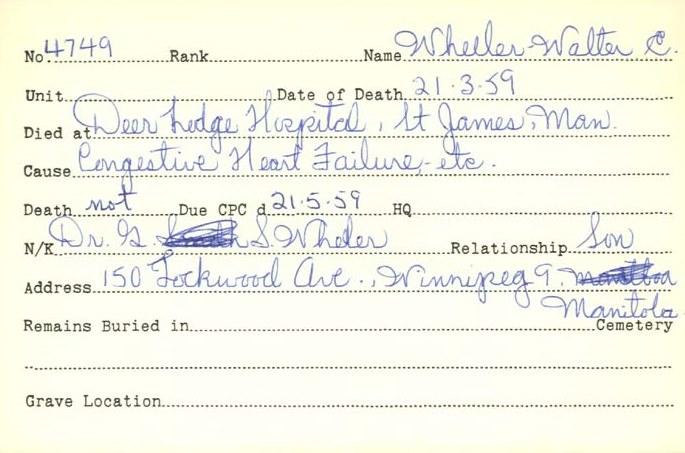 No. 4749 Rank Name Wheeler Walter C.
Unit Date of Death 21.3.59
Died at Deer Lodge Hospital, St James, Man.
Cause Congestive Heart Failure, etc.
Death not Due CPC d 21.5.59 HQ
N/K Dr. G. S. Wheler Relationship Son
Address 150 Lockwood Ave., Winnipeg 9,
Manitoba
Remains Buried in Cemetery
Grave Location